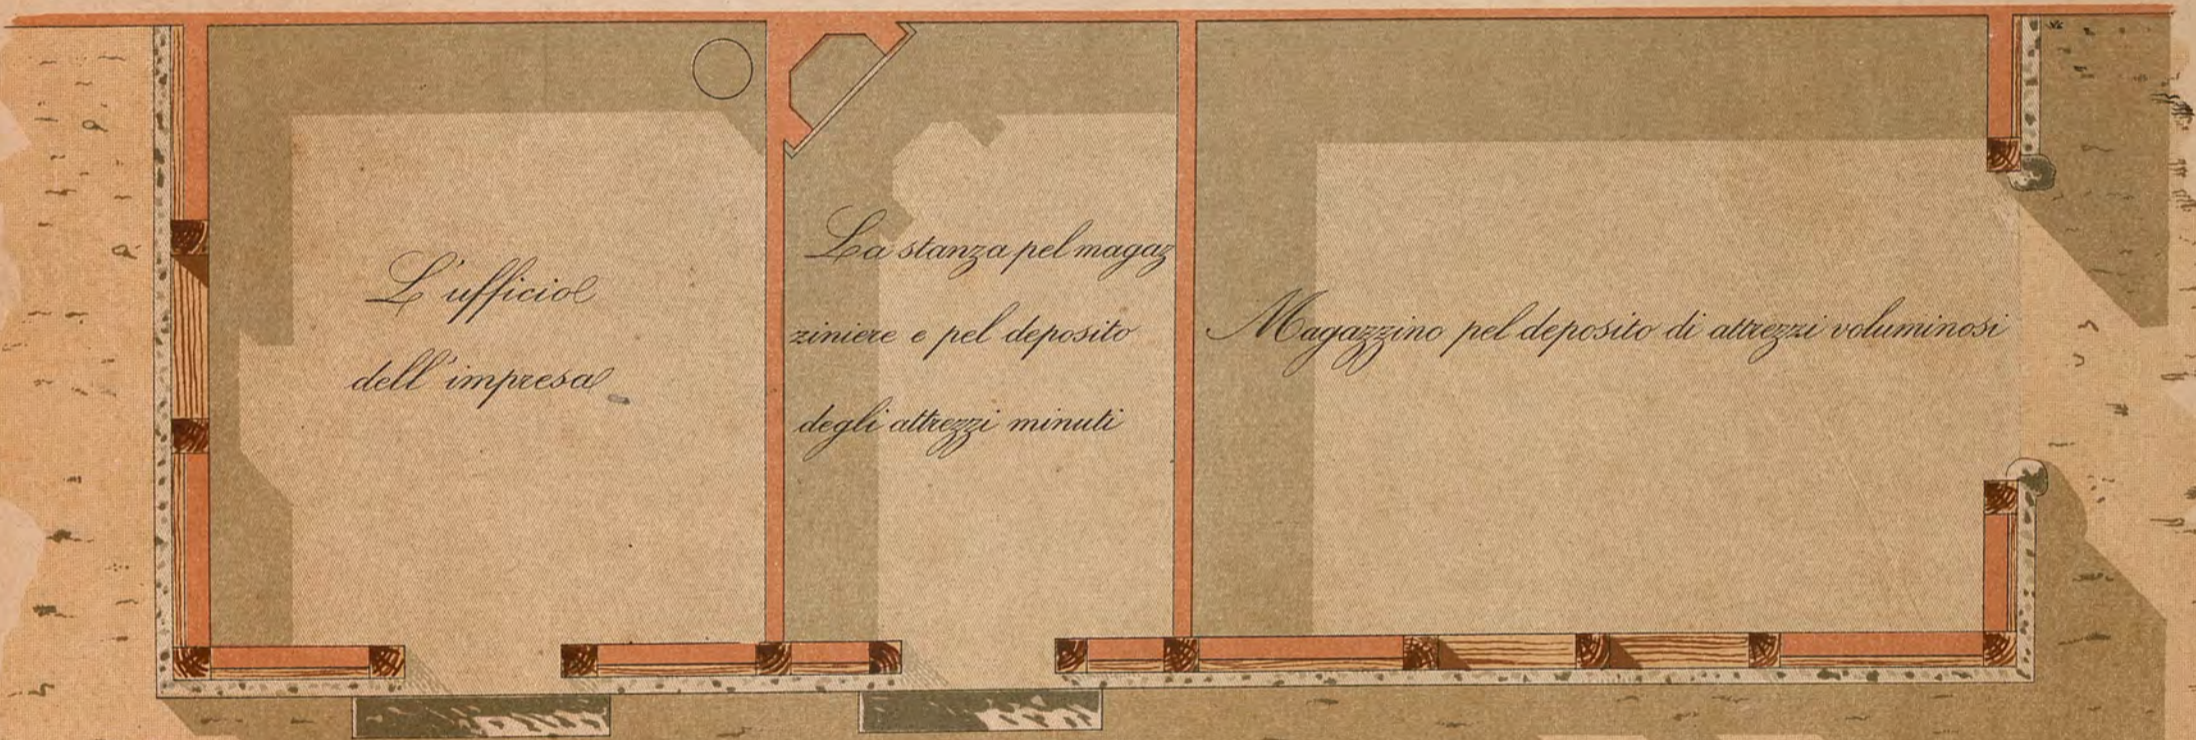 L'ufficio
dell'impresa
La stanza pel magaz
ziniere e pel deposito
degli attrezzi minuti
Magazzino pel deposito di attrezzi voluminosi